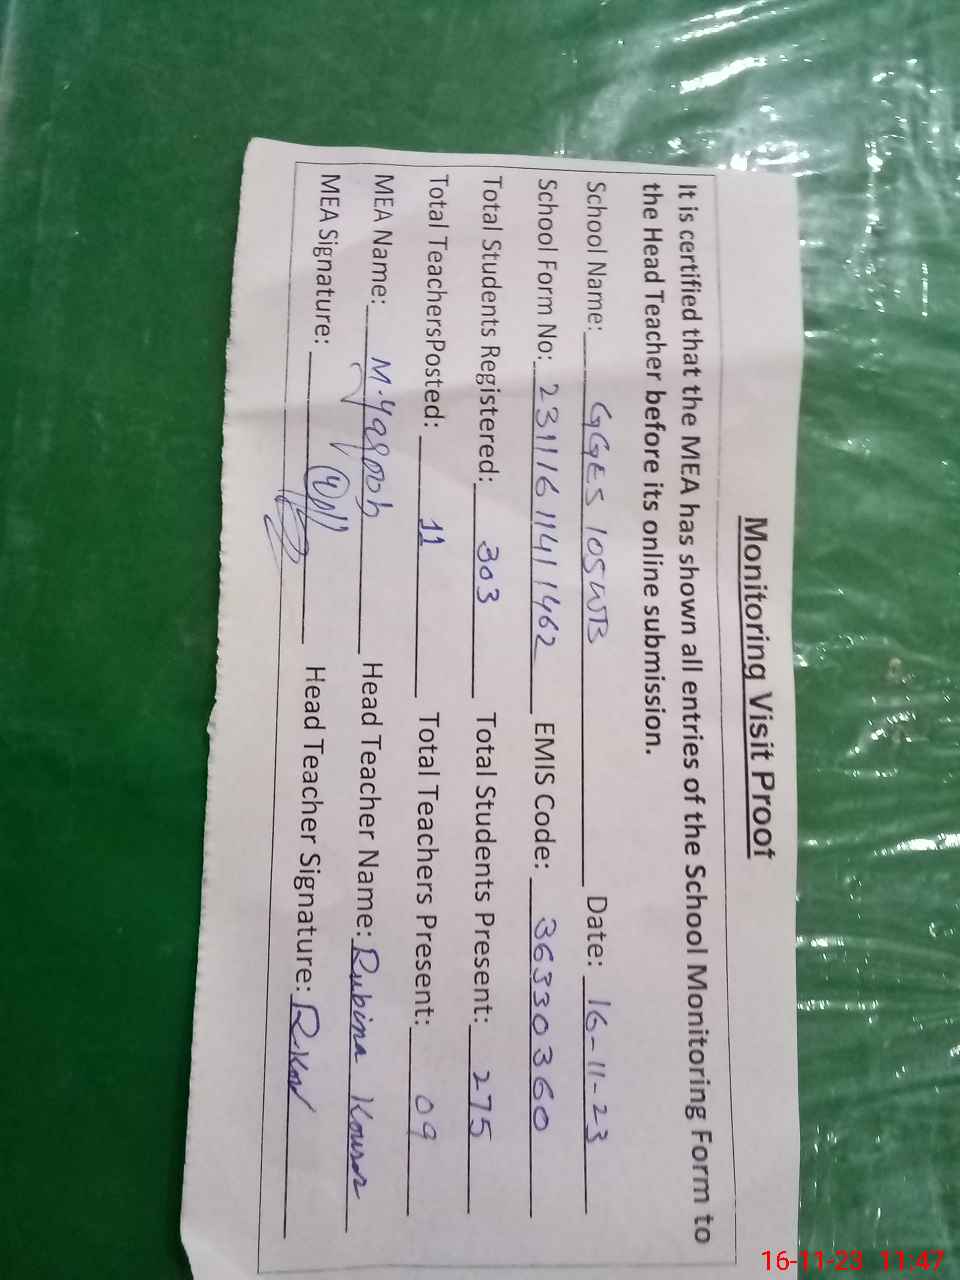 Monitoring Visit Proof
It is certified that the MEA has shown all entries of the School Monitoring Form to
the Head Teacher before its online submission.
School Name: GGES 105WB Date: 16-11-23
School Form No: 231116114111462 EMIS Code: 36330360
Total Students Registered: 303 Total Students Present: 275
Total TeachersPosted: 11 Total Teachers Present: 09
MEA Name: M.Yaqoob Head Teacher Name: Rubina Kousar
MEA Signature: Head Teacher Signature:
16-11-23 11:47